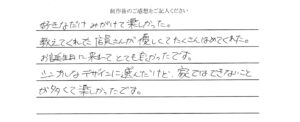 制作後のご感想をご記入ください
好きなだけみがけて楽しかった。
教えてくれた店員さんが優しくてたくさんほめてくれた。
お誕生日に来れてとても良かったです。
シンプルなデザインに選んだけど、家ではできないこと
が多くて楽しかったです。